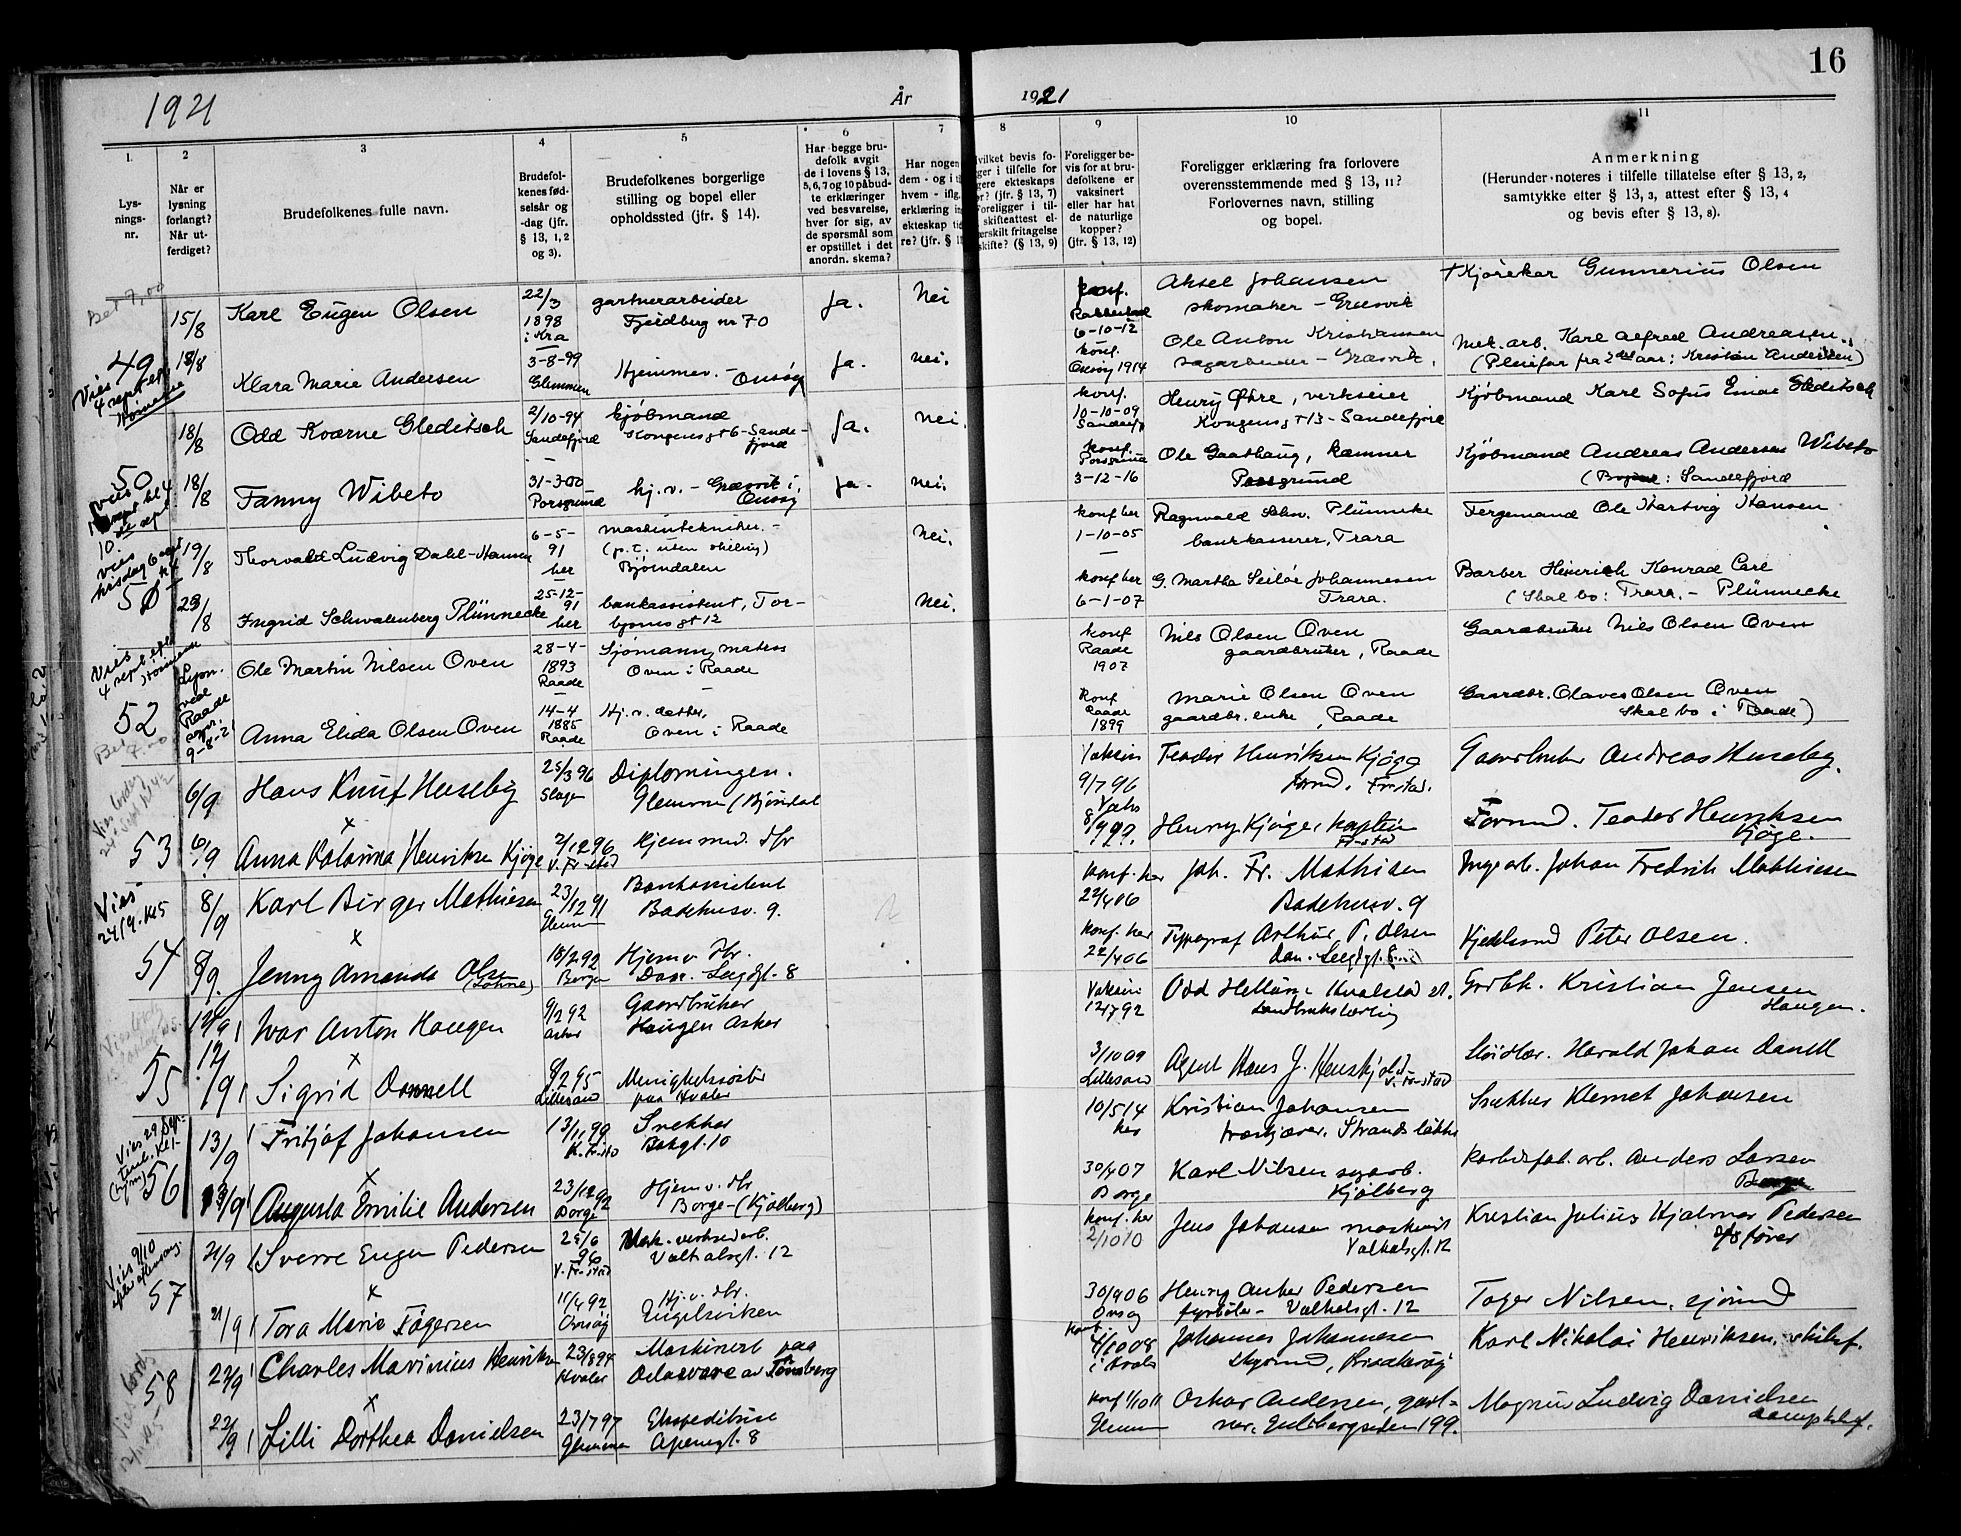 16
1921
År
1921
1.
2
3
4
5
6
7
8
9
10
11
Lys-
nings-
nr.
Når er
lysning
forlangt?
Når ut-
ferdiget?
Brudefolkenes fulle navn.
Brudefol-
kenes fød-
selsår og
-dag (jfr.
§ 13, 1, 2
og 3).
Brudefolkenes borgerlige
stilling og bopel eller
opholdssted (jfr. § 14).
Har begge bru-
defolk avgit
de i lovens § 13,
5, 6, 7 og 10 påbud-
te erklæringer
ved besvarelse,
hver for sig, av
de spørsmål som
er opstillet i det
anordn. skema?
Har nogen
dem - og i
hvem - iflg.
erklæring
ekteskap
re? (jfr. §
vilket bevis fo-
ger i tilfelle for
gere ekteskaps
or? (jfr. § 13, 7)
Foreligger i til-
skifteattest el-
ærskilt fritagelse
skifte? (§ 13, 9)
Foreligger be-
vis for at bru-
defolkene er
vaksinert
eller har hat
de naturlige
kopper?
(jfr. § 13, 12)
Foreligger erklæring fra forlovere
overensstemmende med § 13, 11?
Forlovernes navn, stilling
og bopel.
Anmerkning
(Herunder noteres i tilfelle tillatelse efter § 13, 2,
samtykke efter § 13, 3, attest efter § 13, 4
og bevis efter § 13, 8).
Bet 7,00
15/8
Karl Eugen Olsen
22/3
1898
i Kra
gartnerarbeider
Fjeldberg nr 70
Ja.
Nei
konf.
6-10-12
Aksel Johansen
skomaker - Græsvik
+Kjørekar Gunnerius Olsen
49
Vies
4 sept
18/8
Klara Marie Andersen
3-8-99
Glemmen
Hjemmev. -
Onsøy
Ja.
nei.
konf.
Onsøy 1914
Ole Anton Kristiansen
sagarbeider - Græsvik.
Mek. arb. Karl Alfred Andreasen.
(Pleiefar fra 2det aar: Kristian Andersen)
18/8
Odd Kværne Gleditsch
2/10-94
Sandefjord
kjøbmand
Kongensgt 6 - Sande-
fjord
Ja.
Nei.
konf.
10-10-09
Sandefj
Henry Øhre, verkseier
Kongensgt 13 - Sandefjord
Kjøbmand Karl Sofus Einar Gleditsch
50
18/8
Fanny Wibeto
31-3-00
Porsgrund
hj. v. - Græsvik i
Onsøy
Ja.
nei.
konf.
Porsgrund
3-12-16
Ole Gaathaug, kæmner
Porsgrund
Kjøbmand Andreas Andersen Wibeto
(Bopæl: Sandefjord
19/8
Thorvald Ludvig Dahl-Hansen
6-5-
91
her
maskintekniker. -
(p.t. uten stilling)
Bjørndalen
Nei.
konf her
1-10-05
Ragnvald Schw. Plünnecke
bankkasserer, Trara
Fergemand Ole Hartvig Hansen
51
29/8
Ingrid Schwalenberg Plünnecke
25-12-
91
her
bankassistent, Tor-
bjørnsgt 12
Nei.
konf her
6-1-07
G. Martha Seiløe Johannesen
Trara.
Barber Heinrich Konrad Carl
(Skal bo: Trara. - Plünnecke
Vies
4 sept.
52
Bet
7.00
Lysn.
ved
Raade
9-8-21
Ole Martin Nilsen Oven
28-4-
1893
Raade
Sjømann, matros
Oven i Raade
konf
Raade
1907
Nils Olsen Oven
gaardbruker, Raade
Gaardbruker Nils Olsen Oven
Anna Elida Olsen Oven
14-4
1885
Raade
Hj. v. datter,
Oven i Raade
Konf
Raade
1899
Marie Olsen Oven
gaardbr. enke, Raade
Gaardbr. Olaves Olsen Oven
Skal bo i Raade)
6/9
Hans Knut Huseby
25/3 96
Slagen
Diplomingen.
Glemmen (Bjørndal
Vaksin
9/7 96
Teodor Henriksen Kjøge
Formd. Fr.stad.
Gaardbruker Andreas Huseby.
53
6/9
x
Anna Katarina Henriksen Kjøge
2/12 96
V. Fr-stad
Hjemmev. dtr
Henry Kjøge, kaptein
Fr-stad
Formd. Teodor Henriksen
Kjøge.
Vies
24/9. kl 5
54
8/9
Karl Birger Mathiesen
23/12 91
Glemm
Bankassistent
Badehusv. 9.
Konf. her
22/4 06
Joh. Fr. Mathisen
Badehusv. 9
Johan Fredrik Mathiesen
8/9.
x
Jenny Amanda Olsen
18/2 92
Borge
Hjemv. dtr.
konf. her
22/4 06
Typograf Arthur P. Olsen
Peter Olsen.
55
12/9
Ivar Anton Haugen
9/2 92
Asker
Gaardbruker
Haugen Asker
Vaksin
12/7 92
Odd Hellinge Kvalstad
Landbrukslærling
Grdbk. Kristian Jensen
Haugen.
12/9
x
Sigrid Danell
8/2 95
Lillesand
Menighetssøster
paa Hvaler
3/10 09
Lillesand
Agent Hans J. Henskjold
V. Fr-stad
Harald Johan Danell
Vies 29 Sep-
56
13/9
Fritjof Johansen
13/11 99
K. Fr-stad
Snekker
Bakgt. 10
10/5 14
her
Kristian Johansen
Snekker Klemet Johansen
13/9
x
Augusta Emilie Andersen
23/12 92
Borge
Hjemv. dtr
Borge - (Kjølberg)
30/4 07
Borge
Karl Nilsen
Kjølberg
Anders Larsen
Vies 9/10
57
21/9
Sverre Eugen Pedersen
25/6
96
V. Fr-stad
Mek. verkstedarb.
Valhalsgt. 12
konf. her
2/10 10
Jens Johansen maskinist
Valhalsgt. 12
Kristian Julius Hjalmar Pedersen
21/9
x
Tora Marie Tøgersen
11/4 92
Onsøy
Hj. v. dtr.
Engelsviken
30/9 06
Onsøy
Henry Anker Pedersen
fyrbøter - Valhalsgt. 12
Tøger Nilsen, sjømd
58
22/9
Charles Marinius Henriksen
23/8 94
Hvaler
Maskinist paa
av Tønsberg
4/10 08
Johannes Johannesen
Karl Nikolai Henriksen, skibsf.
22/9
x
Lilli Dorthea Danielsen
23/7 97
Glemmen
Ekspeditrise
Apenesgt. 8
konf 1/10 11
Glemm
Oskar Andersen, gart-
ner. Gulbergsiden 199.
Magnus Ludvig Danielsen